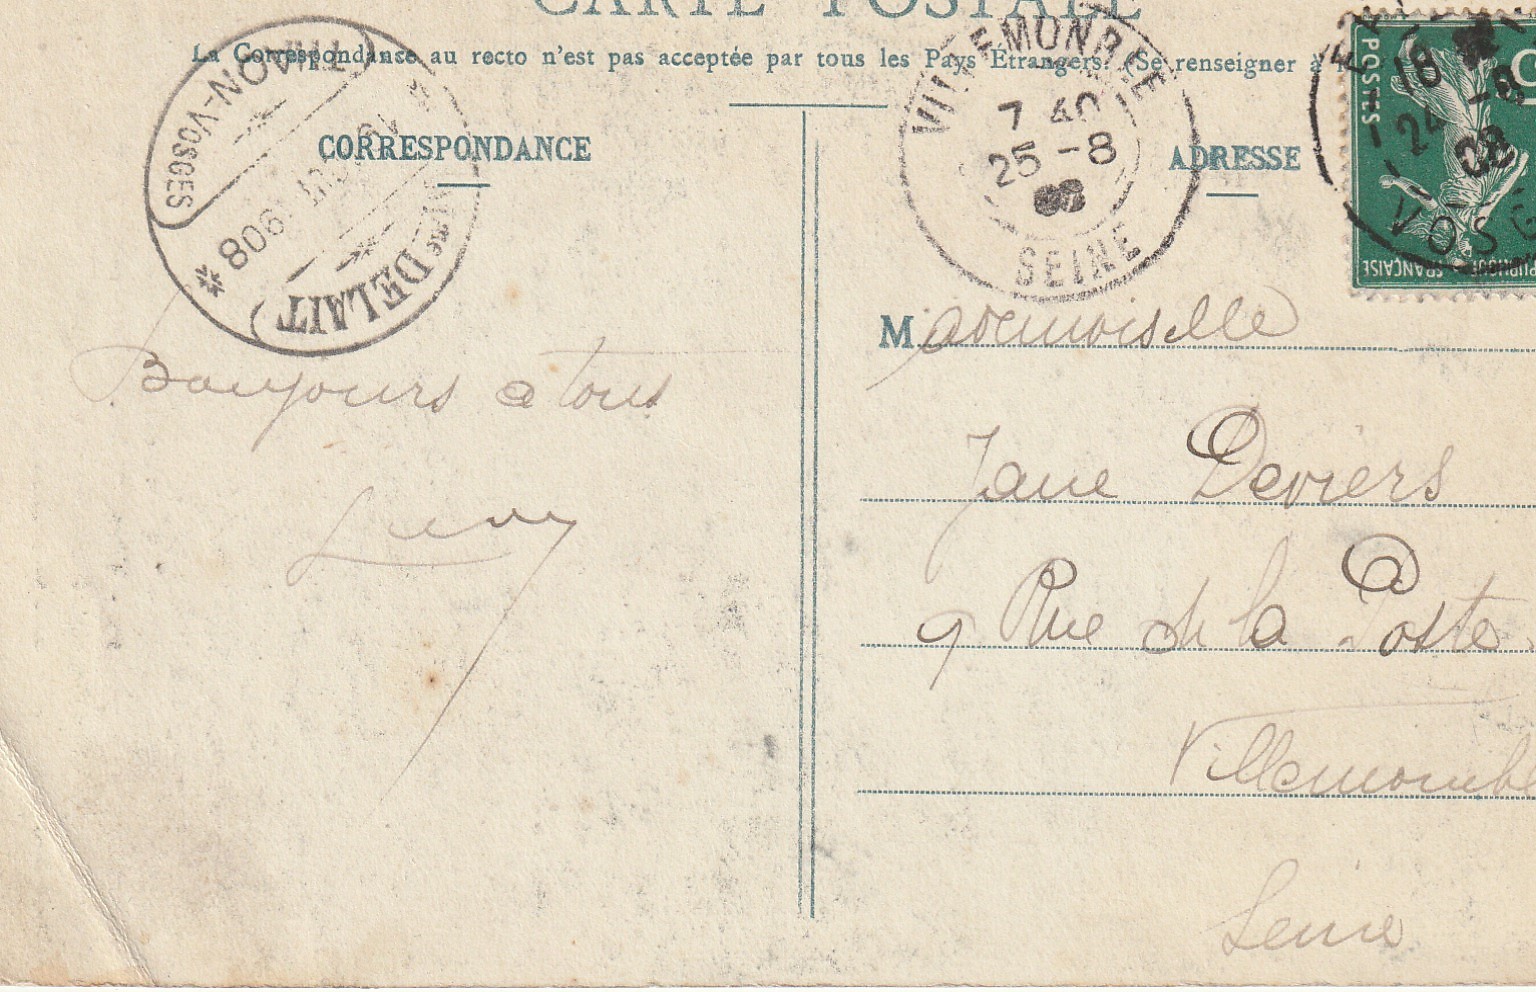 CARTE POSTALE
La Correspondance au recto n'est pas acceptée par tous les Pays Étrangers. (Se renseigner à
CORRESPONDANCE
ADRESSE
THAON-VOSGES
DELAIT
1908
VILLEMOMBLE
7 40
25 -8
08
SEINE
POSTES
18
24 -8
08
VOSG
FRANÇAISE
Mademoiselle
Jane Deviers
9 Rue de la Poste
Villemomble
Seine
Bonjours a tous